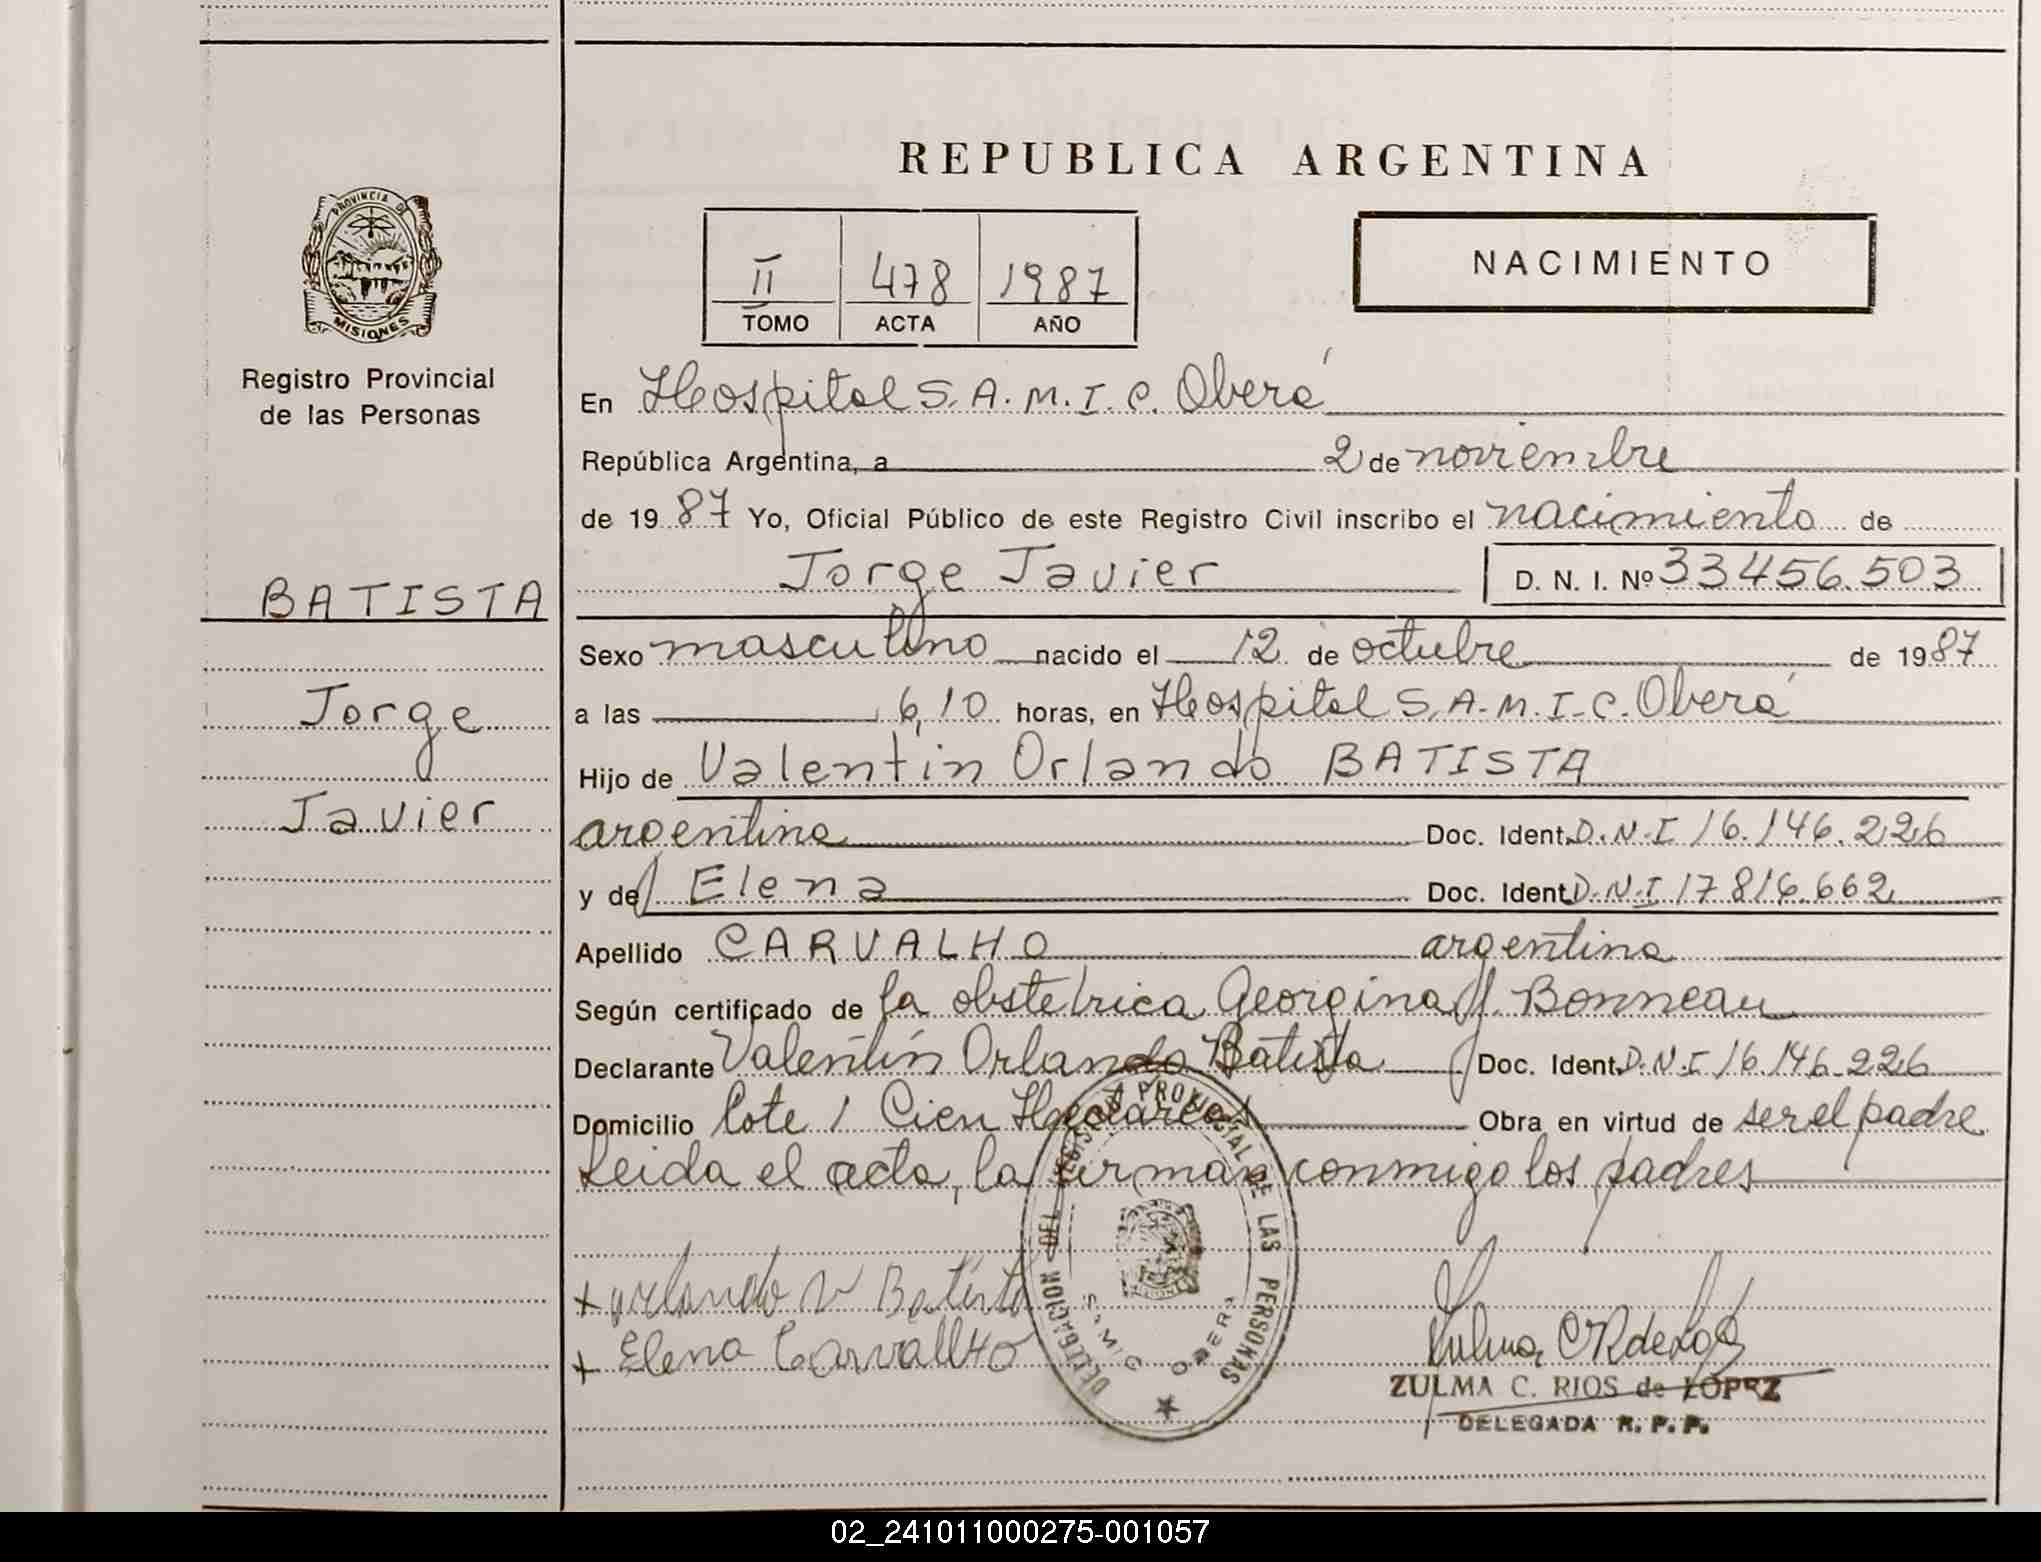 REPUBLICA ARGENTINA
PROVINCIA DE
MISIONES
Registro Provincial
de las Personas
BATISTA
Jorge
Javier
II 478 1987
TOMO ACTA AÑO
NACIMIENTO
En Hospital S.A.M.I.C. Oberá
República Argentina, a 2 de noviembre
de 19 87 Yo, Oficial Público de este Registro Civil inscribo el nacimiento de
Jorge Javier D. N. I. Nº 33456.503
Sexo masculino nacido el 12 de octubre de 19 87
a las 6,10 horas, en Hospital S.A.M.I.C. Oberá
Hijo de Valentin Orlando BATISTA
argentino Doc. Ident. D.N.I 16.146.226
y de Elena Doc. Ident. D.N.I 17816.662
Apellido CARVALHO argentina
Según certificado de la obstetrica Georgina J. Bonneau
Declarante Valentín Orlando Batista Doc. Ident. D.N.I 16.146.226
Domicilio lote 1 Cien Hectareas Obra en virtud de ser el padre
Leida el acta, la firman conmigo los padres
+ orlando V Batista
+ Elena Carvallho
DELEGACION DEL REGISTRO PROVINCIAL DE LAS PERSONAS
SAMIC OBERA
ZULMA C. RIOS de LOPEZ
DELEGADA R. P. P.
02_241011000275-001057